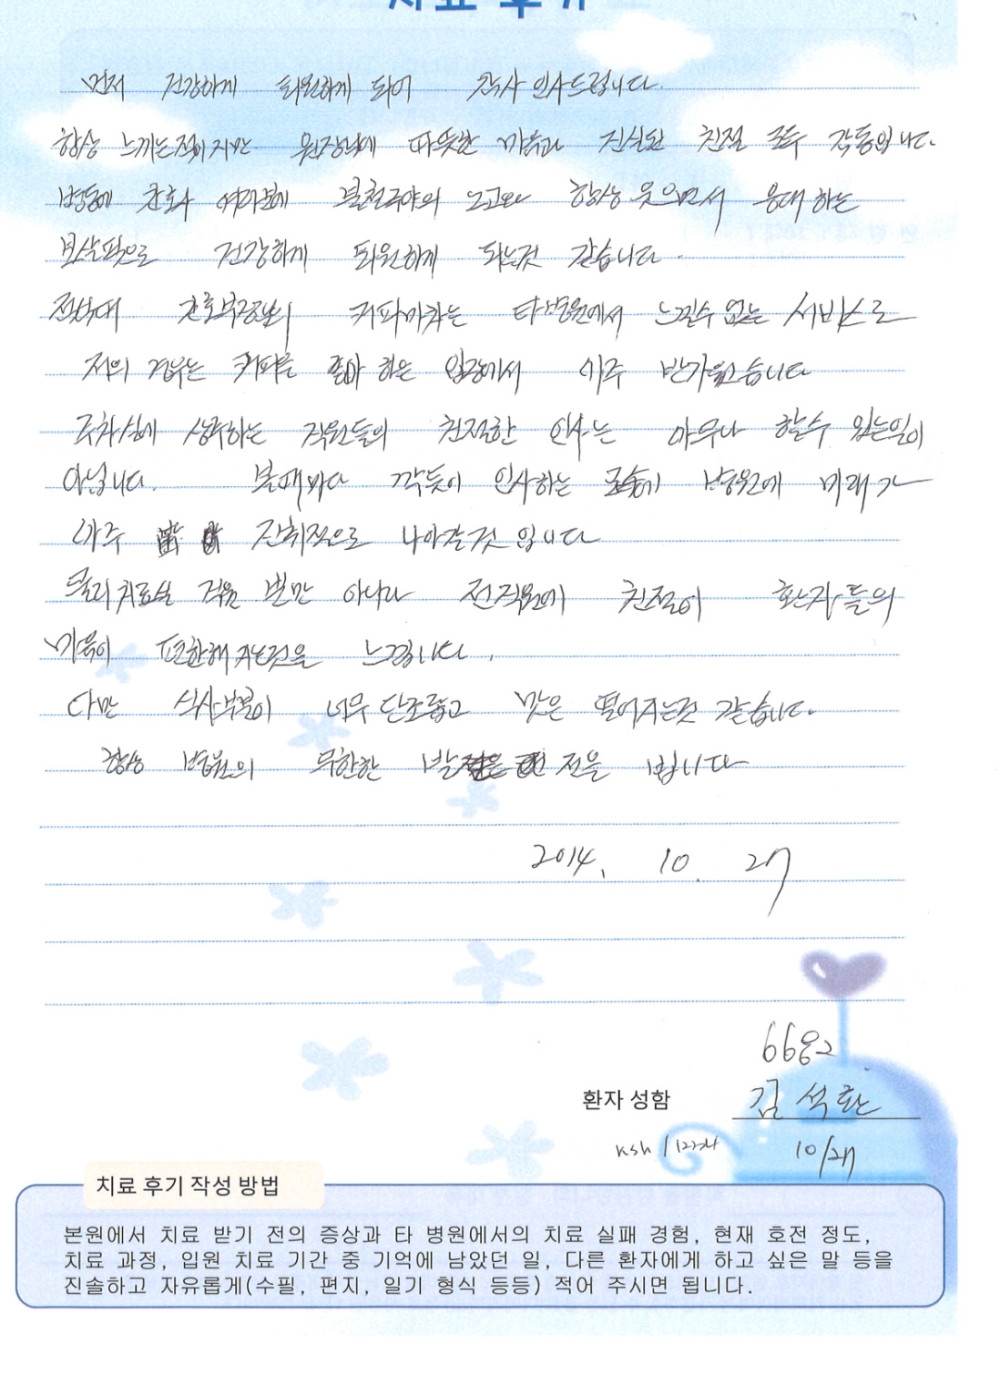 치료 후기
먼저 건강하게 퇴원하게 되어 감사 인사드립니다.
항상 느끼는점이지만 원장님에 따뜻한 마음과 진실된 친절 모두 감동입니다.
병동에 간호사 여러분에 불철주야의 노고와 항상 웃으면서 응대 하는
보살핌으로 건강하게 퇴원하게 되는것 같습니다.
간호부장님의 커피마차는 타병원에서 느낄수 없는 서비스로
저의 경우는 커피를 좋아 하는 입장에서 아주 반가웠습니다
주차장에 상주하는 직원들의 친절한 인사는 아무나 할수 있는일이
아닙니다. 볼때마다 깍듯이 인사하는 모습에 병원에 미래가
아주 진취적으로 나아갈것 입니다
물리치료실 직원 뿐만 아니라 전직원에 친절이 환자들의
마음이 편안해 지는것을 느낍니다.
다만 식사부분이 너무 단조롭고 맛은 떨어지는것 같습니다.
항상 병원의 무한한 발전을 빕니다
2014. 10. 27
6682
환자 성함 김석환
ksh / 12224 10/27
치료 후기 작성 방법
본원에서 치료 받기 전의 증상과 타 병원에서의 치료 실패 경험, 현재 호전 정도,
치료 과정, 입원 치료 기간 중 기억에 남았던 일, 다른 환자에게 하고 싶은 말 등을
진솔하고 자유롭게(수필, 편지, 일기 형식 등등) 적어 주시면 됩니다.